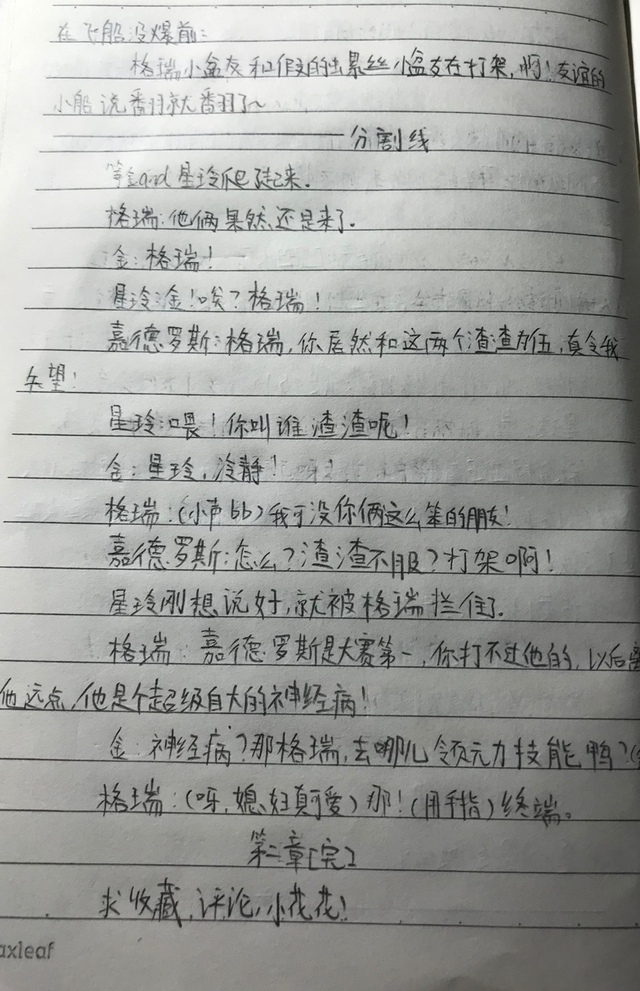 在飞船没爆前:
格瑞小盆友和作文的出累丝小盆友在打架,啊!友谊的
小船说番羽就番羽了~
分割线
等金and星玲爬起来.
格瑞:他俩果然还是来了.
金:格瑞!
星玲:金!唉?格瑞!
嘉德罗斯:格瑞,你居然和这两个渣渣为伍,真令我
失望!
星玲:喂!你叫谁渣渣呢!
金:星玲,冷静!
格瑞:(小声bb)我可没你俩这么笨的朋友!
嘉德罗斯:怎么?渣渣不服?打架啊!
星玲刚想说好,就被格瑞拦住了.
格瑞:嘉德罗斯是大赛第一,你打不过他的,以后离
他远点,他是个超级自大的神经病!
金:神经病?那格瑞,去哪儿领元力技能鸭?
格瑞:(呀,媳妇真可爱)那!(用手指)终端。
第二章[完]
求收藏,评论,小花花!
axleaf